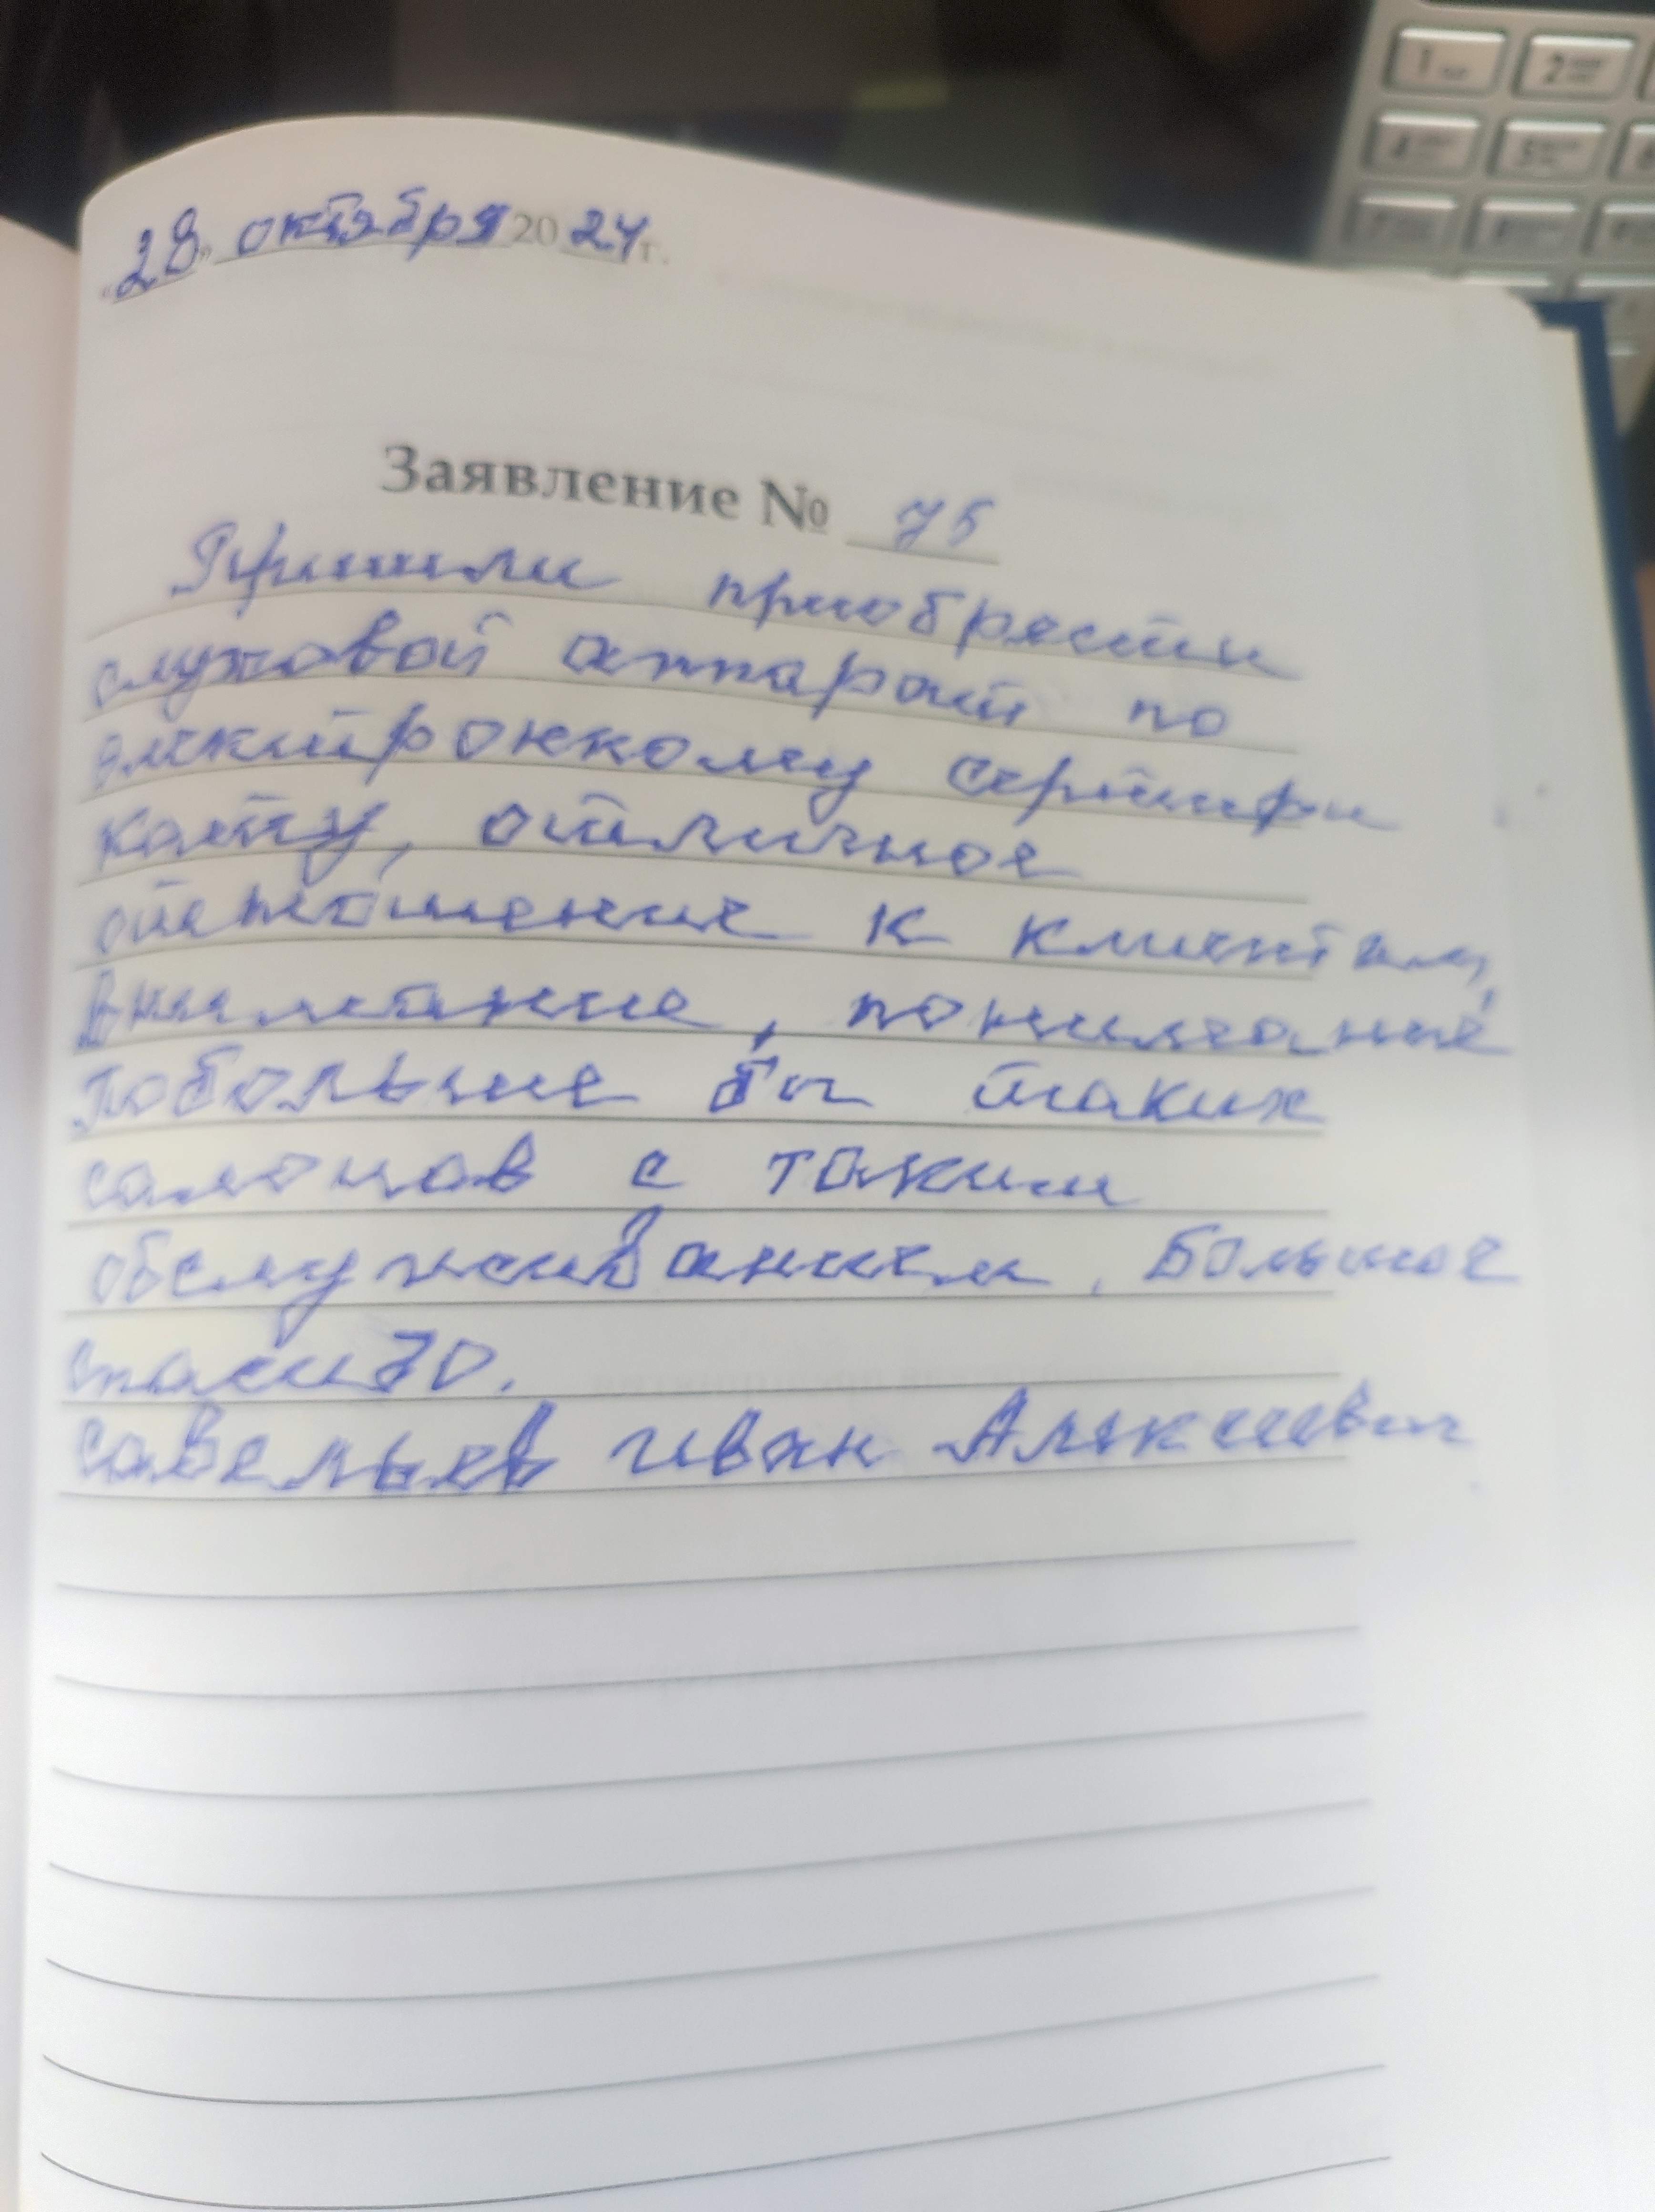 «28» октября 2024 г.
Заявление № 75
Пришли приобрести
слуховой аппарат по
электронному сертифи
кату, отличное
отношение к клиентам,
внимание, понимание
Побольше бы таких
салонов с таким
обслуживанием. Большое
спасибо.
Савельев Иван Алексеевич
1
2
4
5